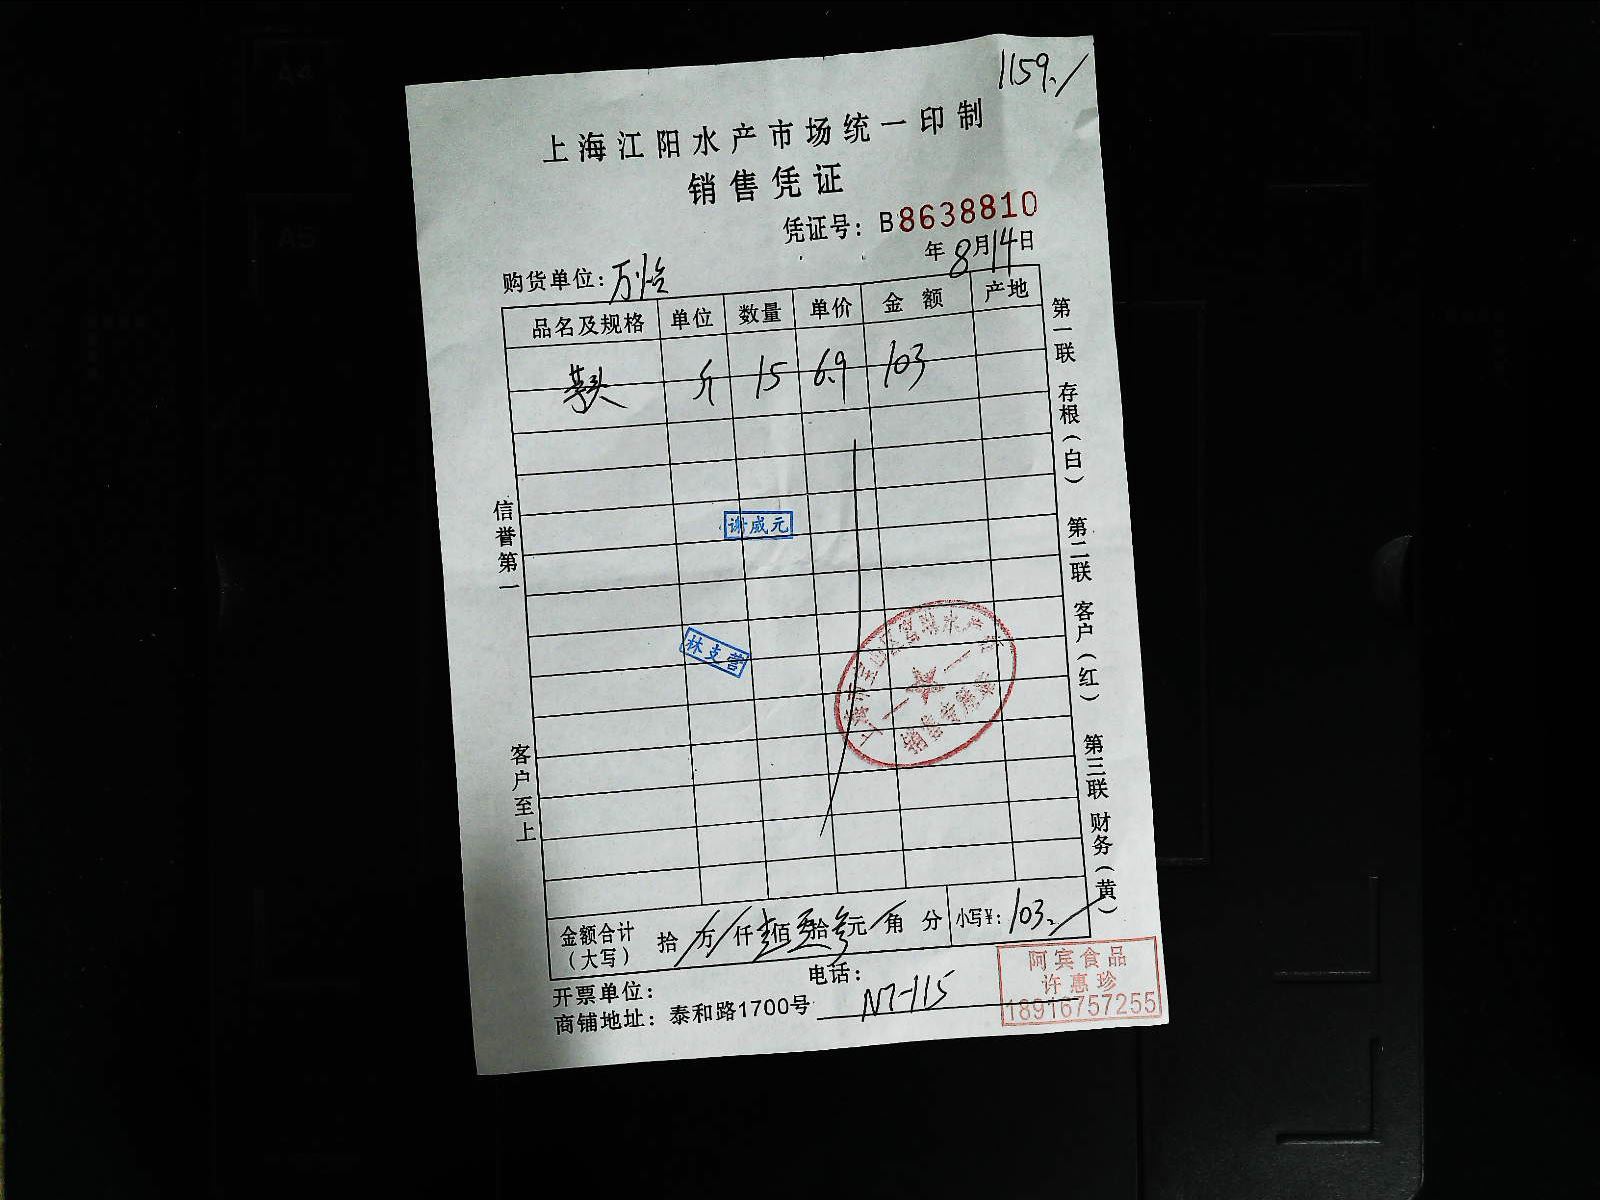 1159./
上海江阳水产市场统一印制
销售凭证
凭证号: B8638810
年8月14日
购货单位: 万怡
品名及规格 单位 数量 单价 金额 产地
斤 15 6.9 103
谢威元
林支营
销售专用章
信誉第一
客户至上
第一联 存根(白) 第二联 客户(红) 第三联 财务(黄)
金额合计(大写) 拾 万 仟 壹佰 拾 叁元 角 分 小写¥: 103.
电话:
开票单位:
商铺地址: 泰和路1700号 N7-115
阿宾食品
许惠珍
18916757255